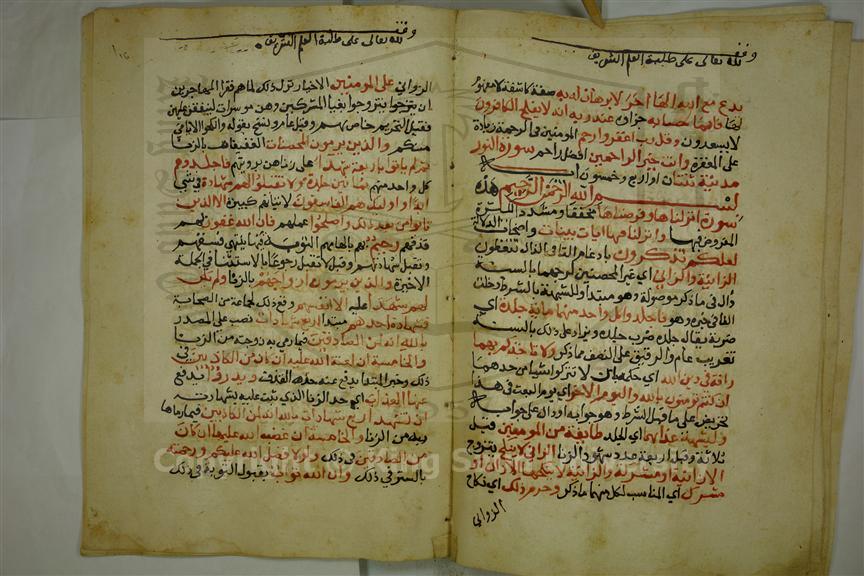 وقف
لله تعالى على طلبة العلم الشريف
يدع مع الله الها آخر لا برهان له به صفة كاشفة لا مفهوم
لها فانما حسابه جزاؤه عند ربه انه لا يفلح الكافرون
لا يسعدون وقل رب اغفر وارحم المومنين في الرحمة زيادة
على المغفرة وانت خير الراحمين افضل راحم سورة النور
مدنية ثنتان او اربع وخمسون اية
بسم الله الرحمن الرحيم هذه
سورة انزلناها وفرضناها مخففا ومشددا لكثرة
المفروض فيها وانزلنا فيها ايات بينات واضحات الدلالة
لعلكم تذكرون بادغام التا في الذال تتعظون
الزانية والزاني اي غير المحصنين لرجمهما بالسنة
وال في ما ذكر موصولة وهو مبتدا وللشبهه بالشرط دخلت
الفا في خبره وهو فاجلدوا كل واحد منهما ماية جلدة اي
ضربة يقال جلده ضرب جلده ويزاد على ذلك بالسنة
تغريب عام والرقيق على النصف مما ذكر ولا تاخذكم بهما
رافة في دين الله اي حكمه بان لا تتركوا شيا من حدهما
ان كنتم تومنون بالله واليوم الاخر اي يوم البعث في هذا
تحريض على ما قبل الشرط وهو جوابه او دال على جوابه
وليشهد عذابهما اي الجلد طايفة من المومنين قيل
ثلاثة وقيل اربعة عدد شهود الزنا الزاني لا ينكح يتزوج
الا زانية او مشركة والزانية لا ينكحها الا زان او
مشرك اي المناسب لكل منهما ما ذكر وحرم ذلك اي نكاح
الزواني
وقف
لله تعالى على طلبة العلم الشريف
الزواني على المومنين الاخيار نزل ذلك لما هم فقرا المهاجرين
ان يتزوجوا بغايا المشركين وهن موسرات لينفقن عليهم
فقيل التحريم خاص بهم وقيل عام ونسخ بقوله وانكحوا الايامى
منكم والذين يرمون المحصنات العفيفات بالزنا
ثم لم ياتوا باربعة شهدا على زناهن برويتهم فاجلدوهم
كل واحد منهم ثمانين جلدة ولا تقبلوا لهم شهادة في شي
ابدا واوليك هم الفاسقون لاتيانهم كبيرة الا الذين
تابوا من بعد ذلك واصلحوا عملهم فان الله غفور لهم
قذفهم رحيم بهم بالهامهم التوبة فبها ينتهي فسقهم
وتقبل شهادتهم وقيل لا تقبل رجوعا بالاستثنا الى الجملة
الاخيرة والذين يرمون ازواجهم بالزنا ولم يكن
لهم شهدا عليه الا انفسهم وقع ذلك لجماعة من الصحابة
فشهادة احدهم مبتدا اربع شهادات نصب على المصدر
بالله انه لمن الصادقين فيما رمى به زوجته من الزنا
والخامسة ان لعنة الله عليه ان كان من الكاذبين في
ذلك وخبر المبتدا يدفع عنه حد القذف ويدروا يدفع
عنها العذاب اي حد الزنا الذي ثبت عليه بشهاداته
ان تشهد اربع شهادات بالله انه لمن الكاذبين فيما رماها
به من الزنا والخامسة ان غضب الله عليها ان كان
من الصادقين في ذلك ولولا فضل الله عليكم ورحمته
بالستر في ذلك وان الله تواب بقبول التوبة في ذلك